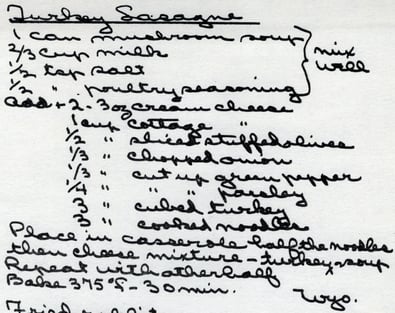 Turkey Lasagne
1 can mushroom soup
2/3 cup milk
1/2 tsp salt
1/2 " poultry seasoning
mix well
add + 2 - 3 oz cream cheese
1 cup cottage "
1/2 " sliced stuffed olives
1/3 " chopped onion
1/3 " cut up green pepper
1/4 " " " parsley
3 " cubed turkey
3 " cooked noodles
Place in casserole half the noodles
then cheese mixture - turkey, soup
Repeat with other half
Bake 375° - 30 min.
Wyo.